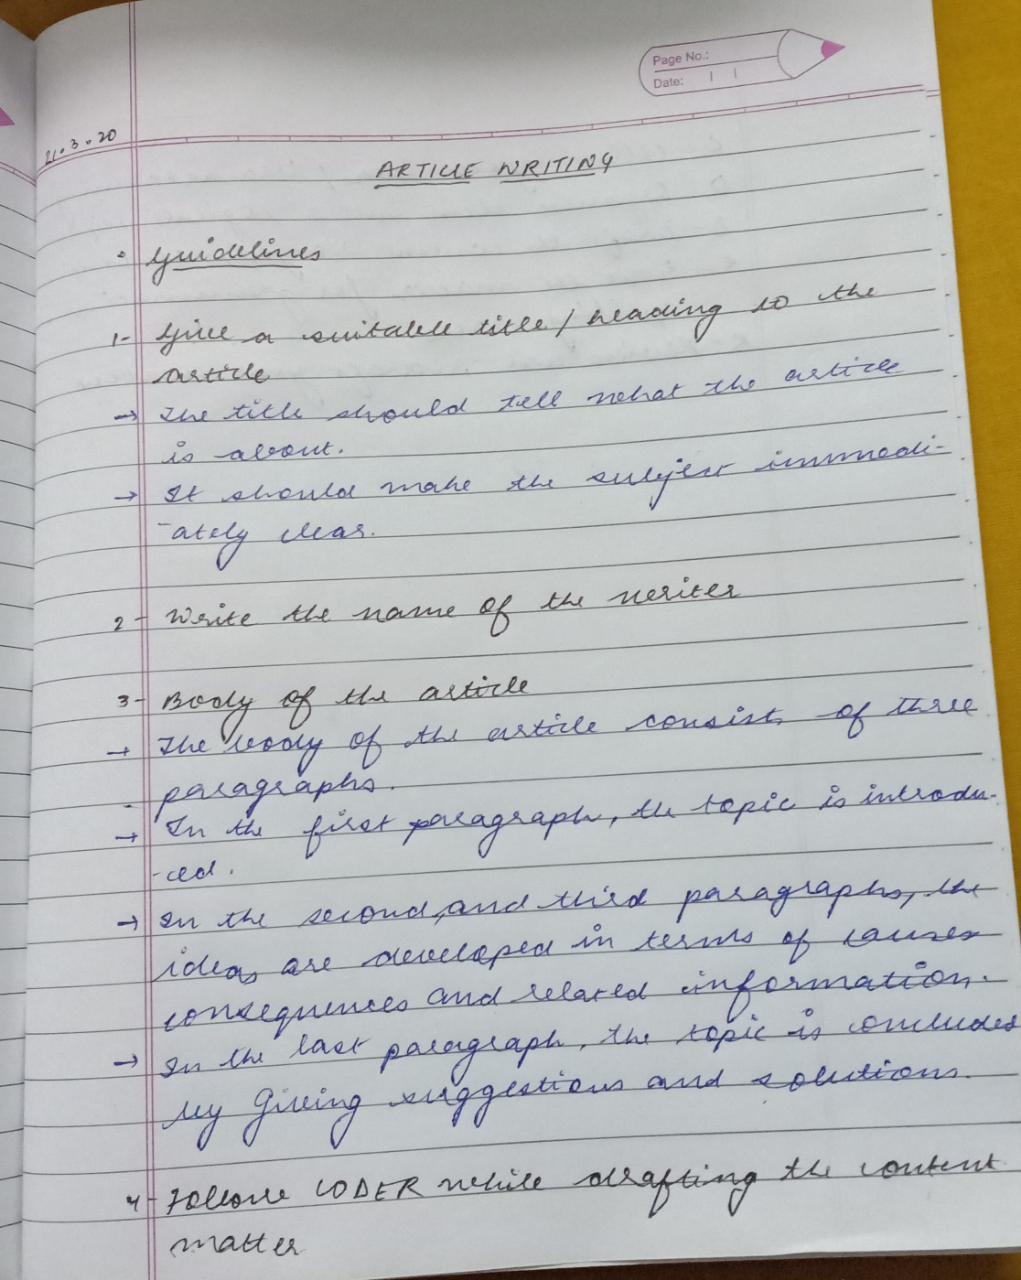 Page No.:
Date:
21.3.20
ARTICLE WRITING
• Guidelines
1- Give a suitable title / heading to the
article
→ The title should tell what the article
is about.
→ It should make the subject immedi-
-ately clear.
2- Write the name of the writer
3- Body of the article
→ The body of the article consist of three
paragraphs.
→ In the first paragraph, the topic is introdu-
-ced.
→ In the second, and third paragraphs, the
ideas are developed in terms of causes
consequences and related information.
→ In the last paragraph, the topic is concludes
by Giving suggestions and solutions.
4- Follow CODER while drafting the content
matter